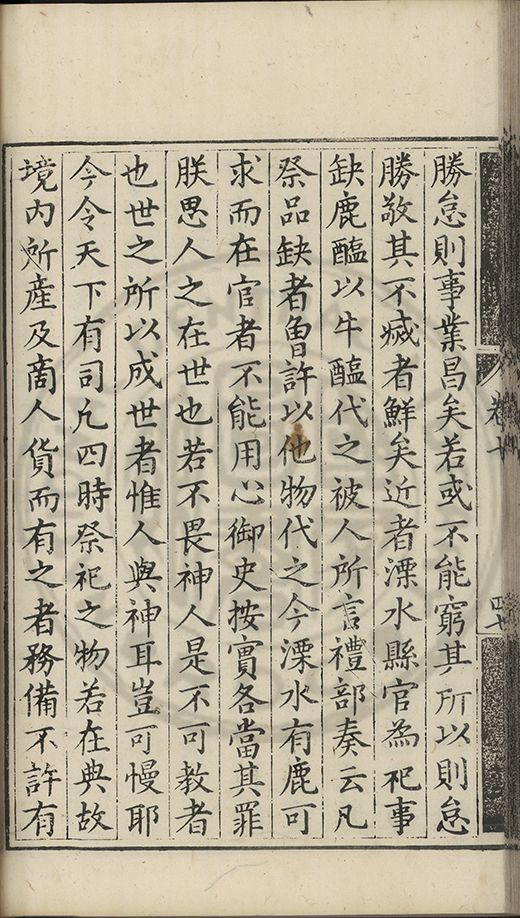 勝怠則事業昌矣若或不能窮其所以則怠
勝敬其不臧者鮮矣近者溧水縣官為祀事
缺鹿醢以牛醢代之被人所言禮部奏云凡
祭品缺者曾許以他物代之今溧水有鹿可
求而在官者不能用心御史按實各當其罪
朕思人之在世也若不畏神人是不可教者
也世之所以成世者惟人與神耳豈可慢耶
今令天下有司凡四時祭祀之物若在典故
境内所產及商人貨而有之者務備不許有